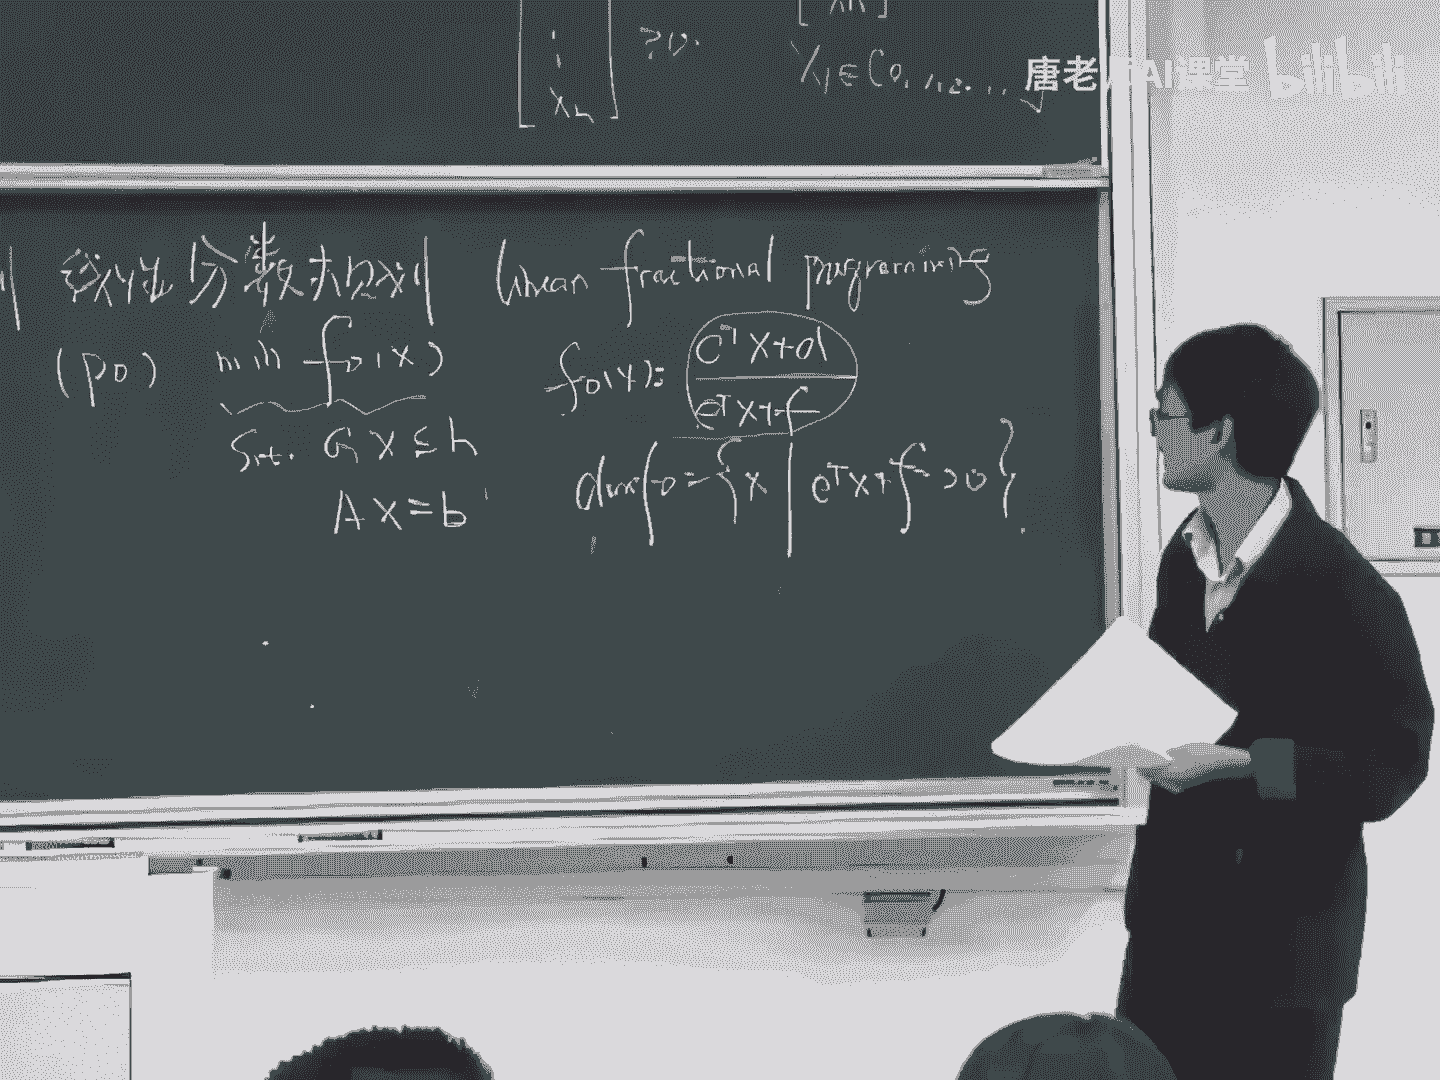 ⋮ ≥0.
xₙ xᵢ∈{0,1,2,...}
唐老师AI课堂 bilibili
线性分数规划 linear fractional programming
(P0) min f₀(x) f₀(x)= cᵀx+d
eᵀx+f
s.t. Gx≤h
Ax=b dom f₀={x | eᵀx+f>0}